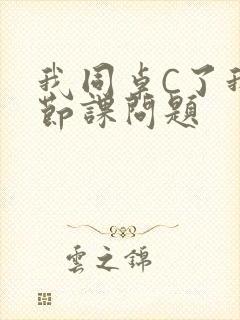 我同卓C了我
節課問題
雲之錦